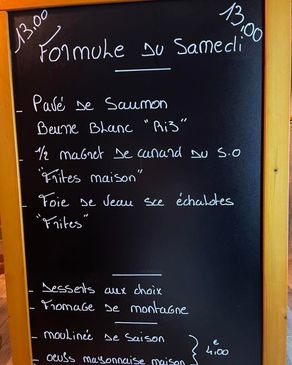 13.00 13.00
Formule du Samedi
- Pavé de Saumon
Beurre Blanc "Riz"
- 1/2 magret de canard du S.O
"Frites maison"
- Foie de veau sce échalotes
"Frites"
- Desserts aux choix
- Fromage de montagne
- moulinée de saison
- oeufs mayonnaise maison } 4.00€